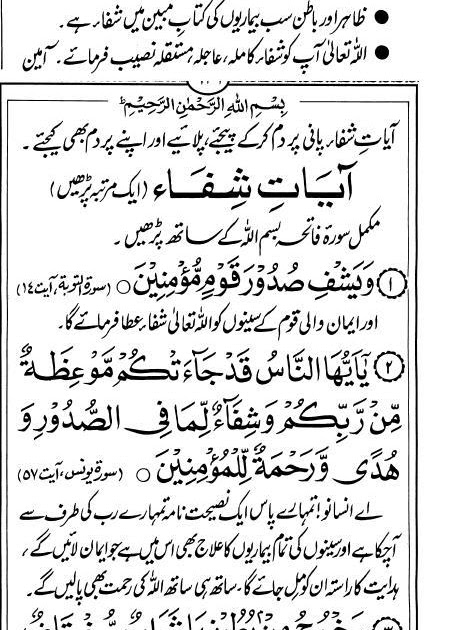 ● ظاہر اور باطن سب بیماریوں کی کتاب مبین میں شفاء ہے۔
● اللہ تعالیٰ آپ کو شفاء کاملہ، عاجلہ، مستقلہ نصیب فرمائے۔ آمین
بِسْمِ اللهِ الرَّحْمٰنِ الرَّحِيْمِ ط
آیاتِ شفاء پانی پر دم کر کے پیجئے، پلائیے اور اپنے پر دم بھی کیجئے۔
آیَاتِ شِفَاء (ایک مرتبہ پڑھیں)
مکمل سورۃ فاتحہ بسم اللہ کے ساتھ پڑھیں۔
۱ وَيَشْفِ صُدُوْرَ قَوْمٍ مُّؤْمِنِيْنَ ○ (سورۃ التوبۃ، آیت ۱۴)
اور ایمان والی قوم کے سینوں کو اللہ تعالیٰ شفاء عطا فرمائے گا۔
۲ يٰۤاَيُّهَا النَّاسُ قَدْ جَآءَتْكُمْ مَّوْعِظَةٌ
مِّنْ رَّبِّكُمْ وَشِفَآءٌ لِّمَا فِى الصُّدُوْرِ وَ
هُدًى وَّرَحْمَةٌ لِّلْمُؤْمِنِيْنَ ○ (سورۃ یونس، آیت ۵۷)
اے انسانو! تمہارے پاس ایک نصیحت نامہ تمہارے رب کی طرف سے
آ چکا ہے اور سینوں کی تمام بیماریوں کا علاج بھی اس میں ہے جو ایمان لائیں گے،
ہدایت کا راستہ ان کو مل جائے گا، ساتھ ہی ساتھ اللہ کی رحمت بھی پالیں گے۔